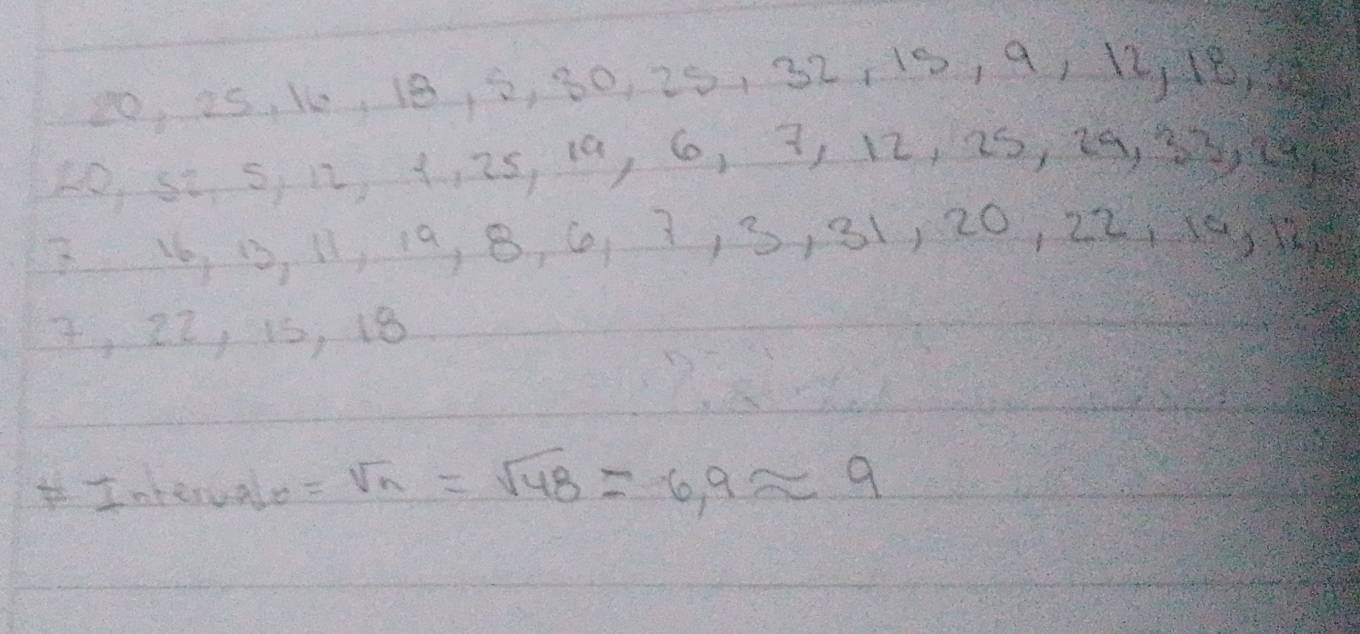 20, 25, 16, 18, 5, 30, 25, 32, 15, 9, 12, 18,
20, 5, 12, 1, 25, 19, 6, 7, 12, 25, 29, 33,
7 16, 13, 11, 19, 8, 6, 7, 3, 31, 20, 22, 19, 12,
7, 22, 15, 18
# Intervalo = √n = √48 = 6,9 ≈ 9